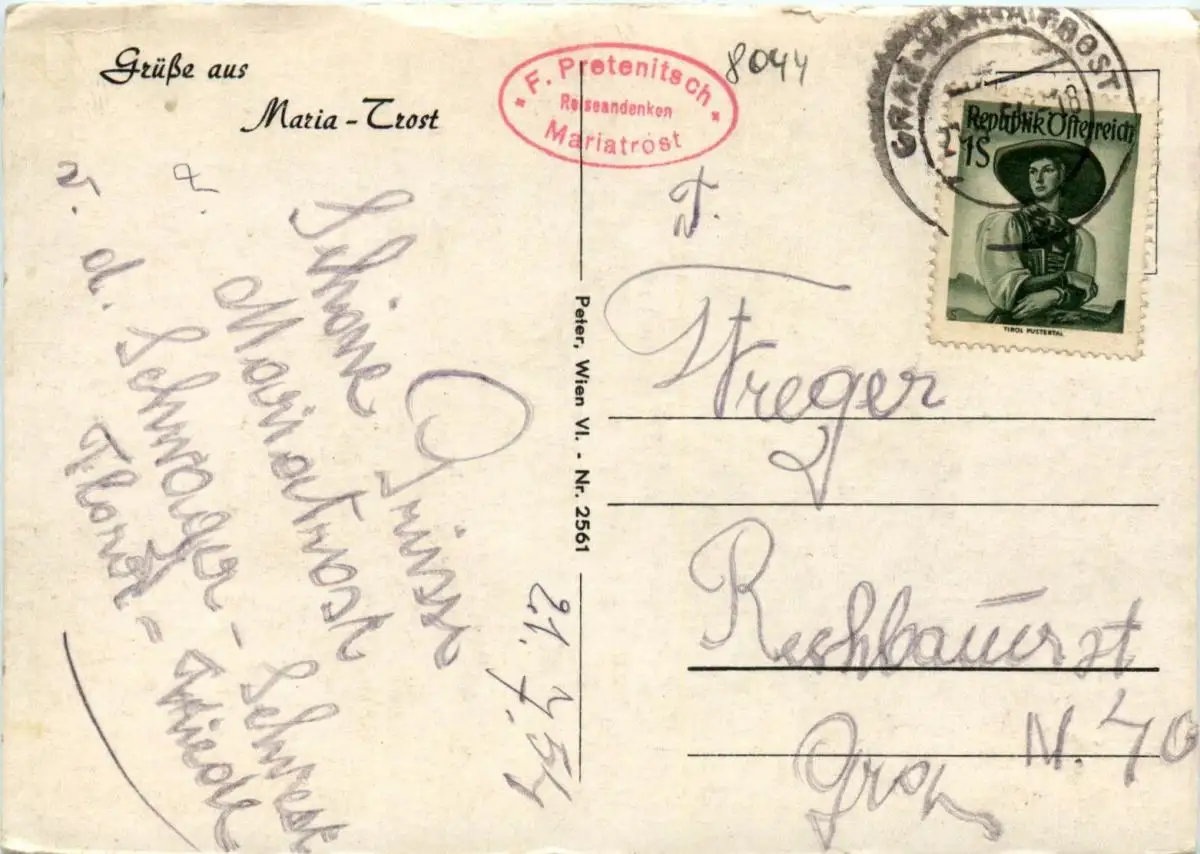 Grüße aus
Maria-Trost
F. Pretenitsch
Reiseandenken
Mariatrost
8044
GRAZ-MARIATROST
18
Republik Österreich
1S
TIROL PUSTERTAL
Schöne Grüsse
Mariatrost
v. d. Schwager-Schwest
21. 7. 54
Peter, Wien VI. - Nr. 2561
F.
Treger
Rechbauerst
N. 40
Graz